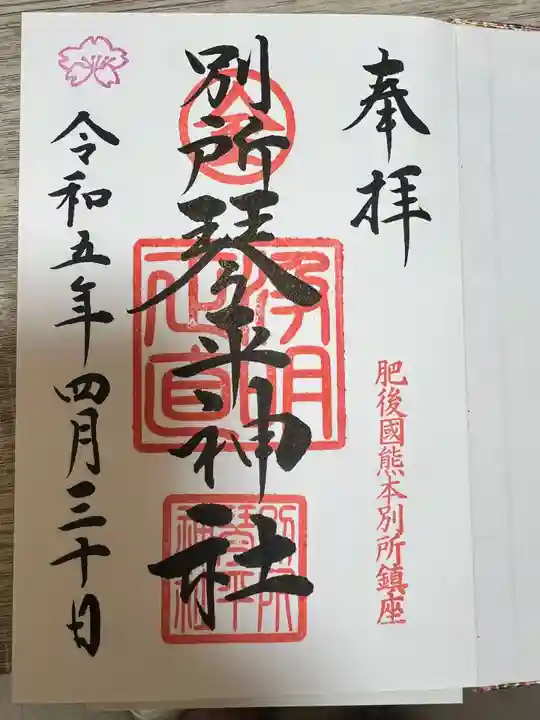 奉拝
肥後國熊本別所鎮座
別所琴平神社
浄明
正直
別所
琴平
神社
令和五年四月三十日